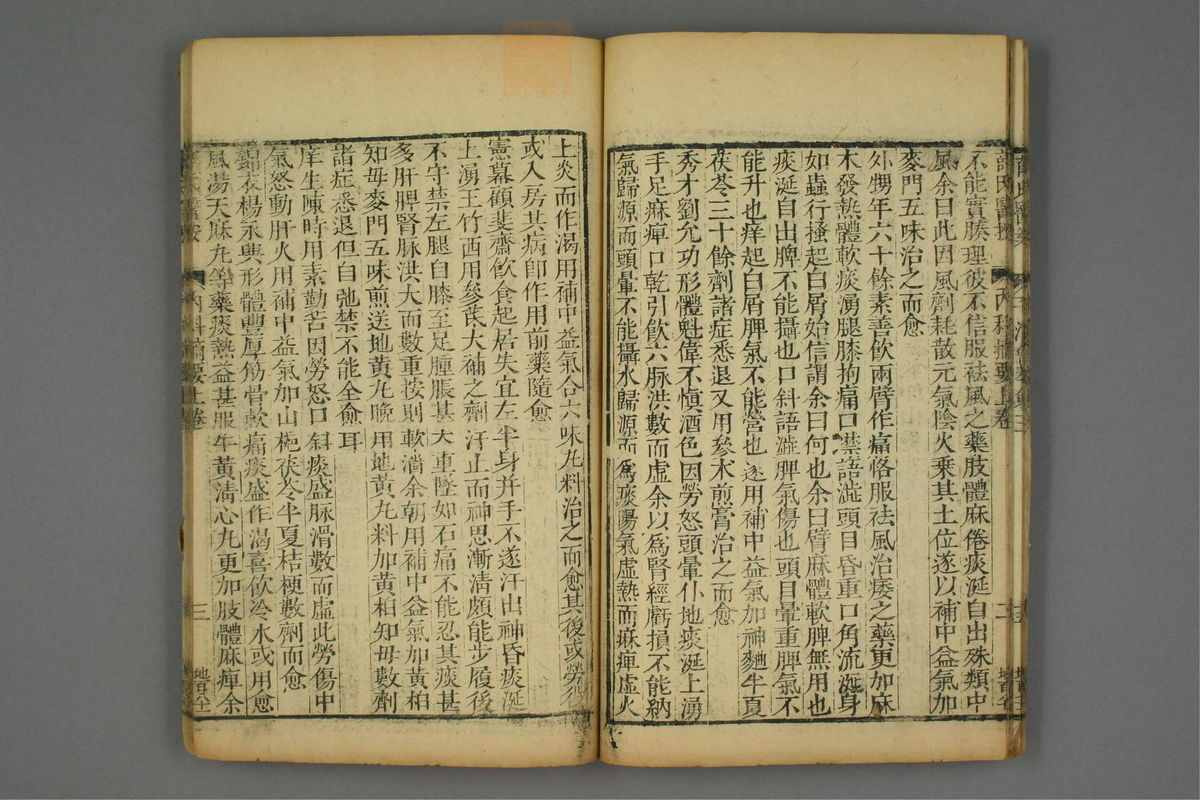 不能實腠理彼不信服祛風之藥肢體麻倦痰涎自出殊類中
風余曰此因風劑耗散元氣陰火乘其土位遂以補中益氣加
麥門五味治之而愈
外甥年六十餘素善飲兩臂作痛恪服祛風治痿之藥更加麻
木發熱體軟痰湧腿膝拘痛口噤語澁頭目昏重口角流涎身
如蟲行搔起白屑始信謂余曰何也余曰臂麻體軟脾無用也
痰涎自出脾不能攝也口斜語澁脾氣傷也頭目暈重脾氣不
能升也痒起白屑脾氣不能營也遂用補中益氣加神麯半夏
茯苓三十餘劑諸症悉退又用參朮煎膏治之而愈
秀才劉允功形體魁偉不愼酒色因勞怒頭暈仆地痰涎上湧
手足麻痺口乾引飲六脉洪數而虛余以爲腎經虧損不能納
氣歸源而頭暈不能攝水歸源而爲痰陽氣虛熱而麻痺虛火
上炎而作渴用補中益氣合六味丸料治之而愈其後或勞役
或入房其病卽作用前藥隨愈
憲幕顧斐齋飲食起居失宜左半身并手不遂汗出神昏痰涎
上湧王竹西用參芪大補之劑汗止而神思漸淸頗能步履後
不守禁左腿自膝至足腫脹甚大重墜如石痛不能忍其痰甚
多肝脾腎脉洪大而數重按則軟濇余朝用補中益氣加黃柏
知母麥門五味煎送地黃丸晩用地黃丸料加黃柏知母數劑
諸症悉退但自弛禁不能全愈耳
庠生陳時用素勤苦因勞怒口斜痰盛脉滑數而虛此勞傷中
氣怒動肝火用補中益氣加山梔茯苓半夏桔梗數劑而愈
錦衣楊永興形體豐厚筋骨軟痛痰盛作渴喜飲冷水或用愈
風湯天麻丸等藥痰熱益甚服牛黃淸心丸更加肢體麻痺余
內科摘要上卷
三